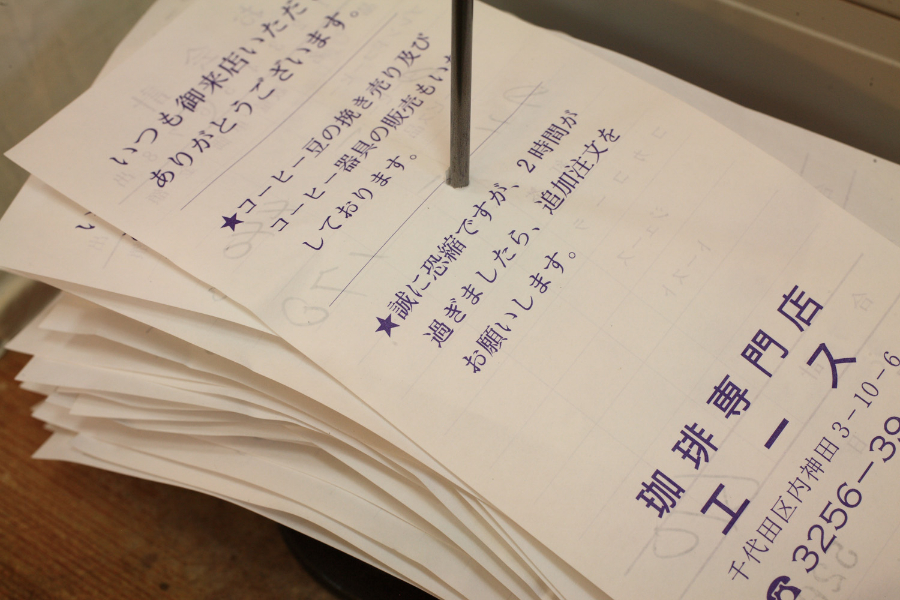 いつも御来店いただ
ありがとうございます。
★コーヒー豆の挽き売り及び
コーヒー器具の販売もい
しております。
★誠に恐縮ですが、2時間が
過ぎましたら、追加注文を
お願いします。
珈琲専門店
エース
千代田区内神田3-10-6
☎3256-39